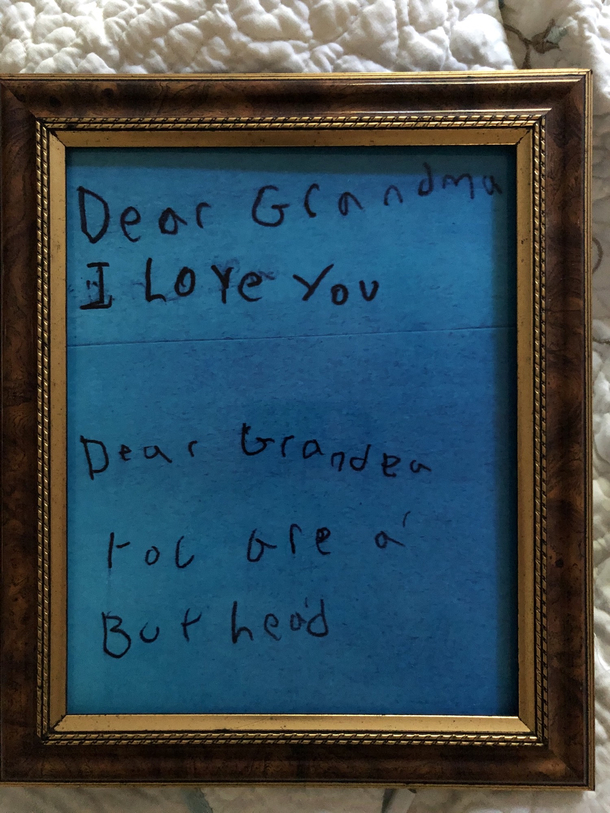 Dear Grandma
I Love You
Dear Grandpa
You are a
But head